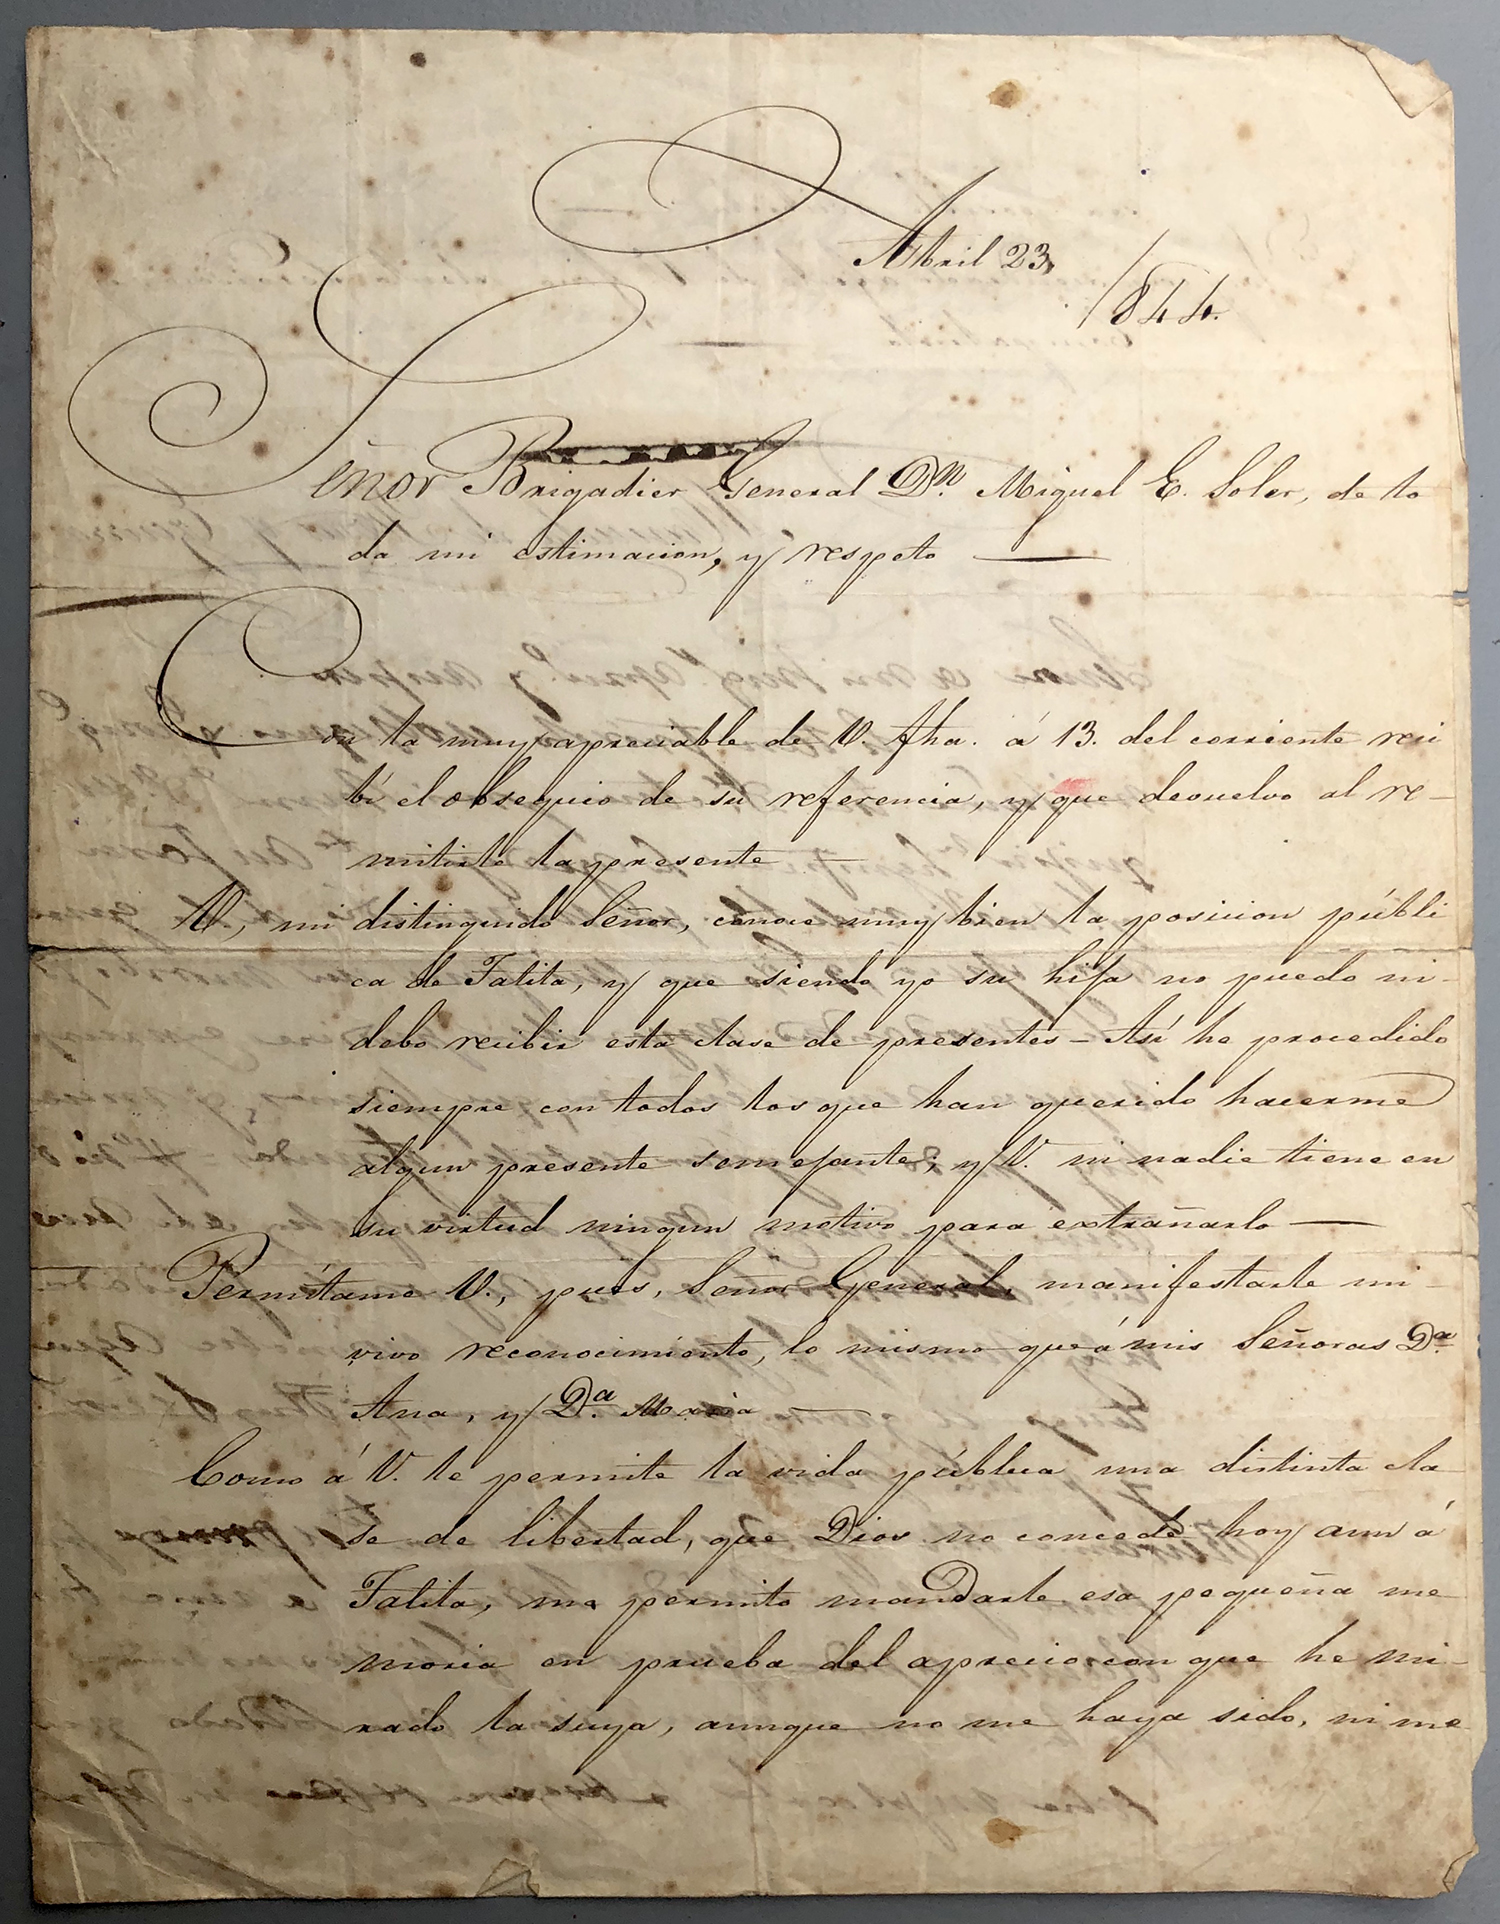 Abril 23,
/844.
Señor Brigadier General Dn. Miguel E. Soler, de to
da mi estimacion, y respeto —
Con la muy apreciable de V. fha. á 13. del corriente reci
bí el obsequio de su referencia, y que devuelvo al re-
mitirle la presente —
V, mi distinguido Señor, conoce muy bien la posicion públi
ca de Tatita, y que siendo yo su hija no puedo ni-
debo recibir esta clase de presentes - Así he procedido
siempre con todos los que han querido hacerme
algun presente semejante; y V. ni nadie tiene en
su virtud ningun motivo para extrañarlo —
Permítame V., pues, Señor General, manifestarle mi-
vivo reconocimiento, lo mismo que á mis Señoras Da.
Ana, y Da. Maria —
Como á V. le permite la vida pública una distinta cla
se de libertad, que Dios no concede hoy aun á
Tatita, me permito mandarle esa pequeña me
moria en prueba del aprecio con que he mi-
rado la suya, aunque no me haya sido, ni me